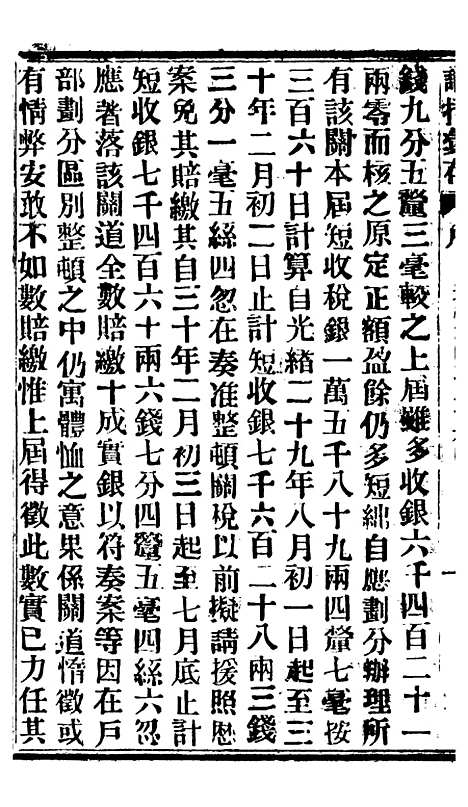 錢九分五釐三毫較之上屆雖多收銀六千四百二十一
兩零而核之原定正額盈餘仍多短絀自應劃分辦理所
有該關本屆短收稅銀一萬五千八十九兩四釐七毫按
三百六十日計算自光緒二十九年八月初一日起至三
十年二月初二日止計短收銀七千六百二十八兩三錢
三分一毫五絲四忽在奏准整頓關稅以前擬請援照歷
案免其賠繳其自三十年二月初三日起至七月底止計
短收銀七千四百六十兩六錢七分四釐五毫四絲六忽
應著落該關道全數賠繳十成實銀以符奏案等因在戶
部劃分區別整頓之中仍寓體恤之意果係關道惰徵或
有情弊安敢不如數賠繳惟上屆得徵此數實已力任其